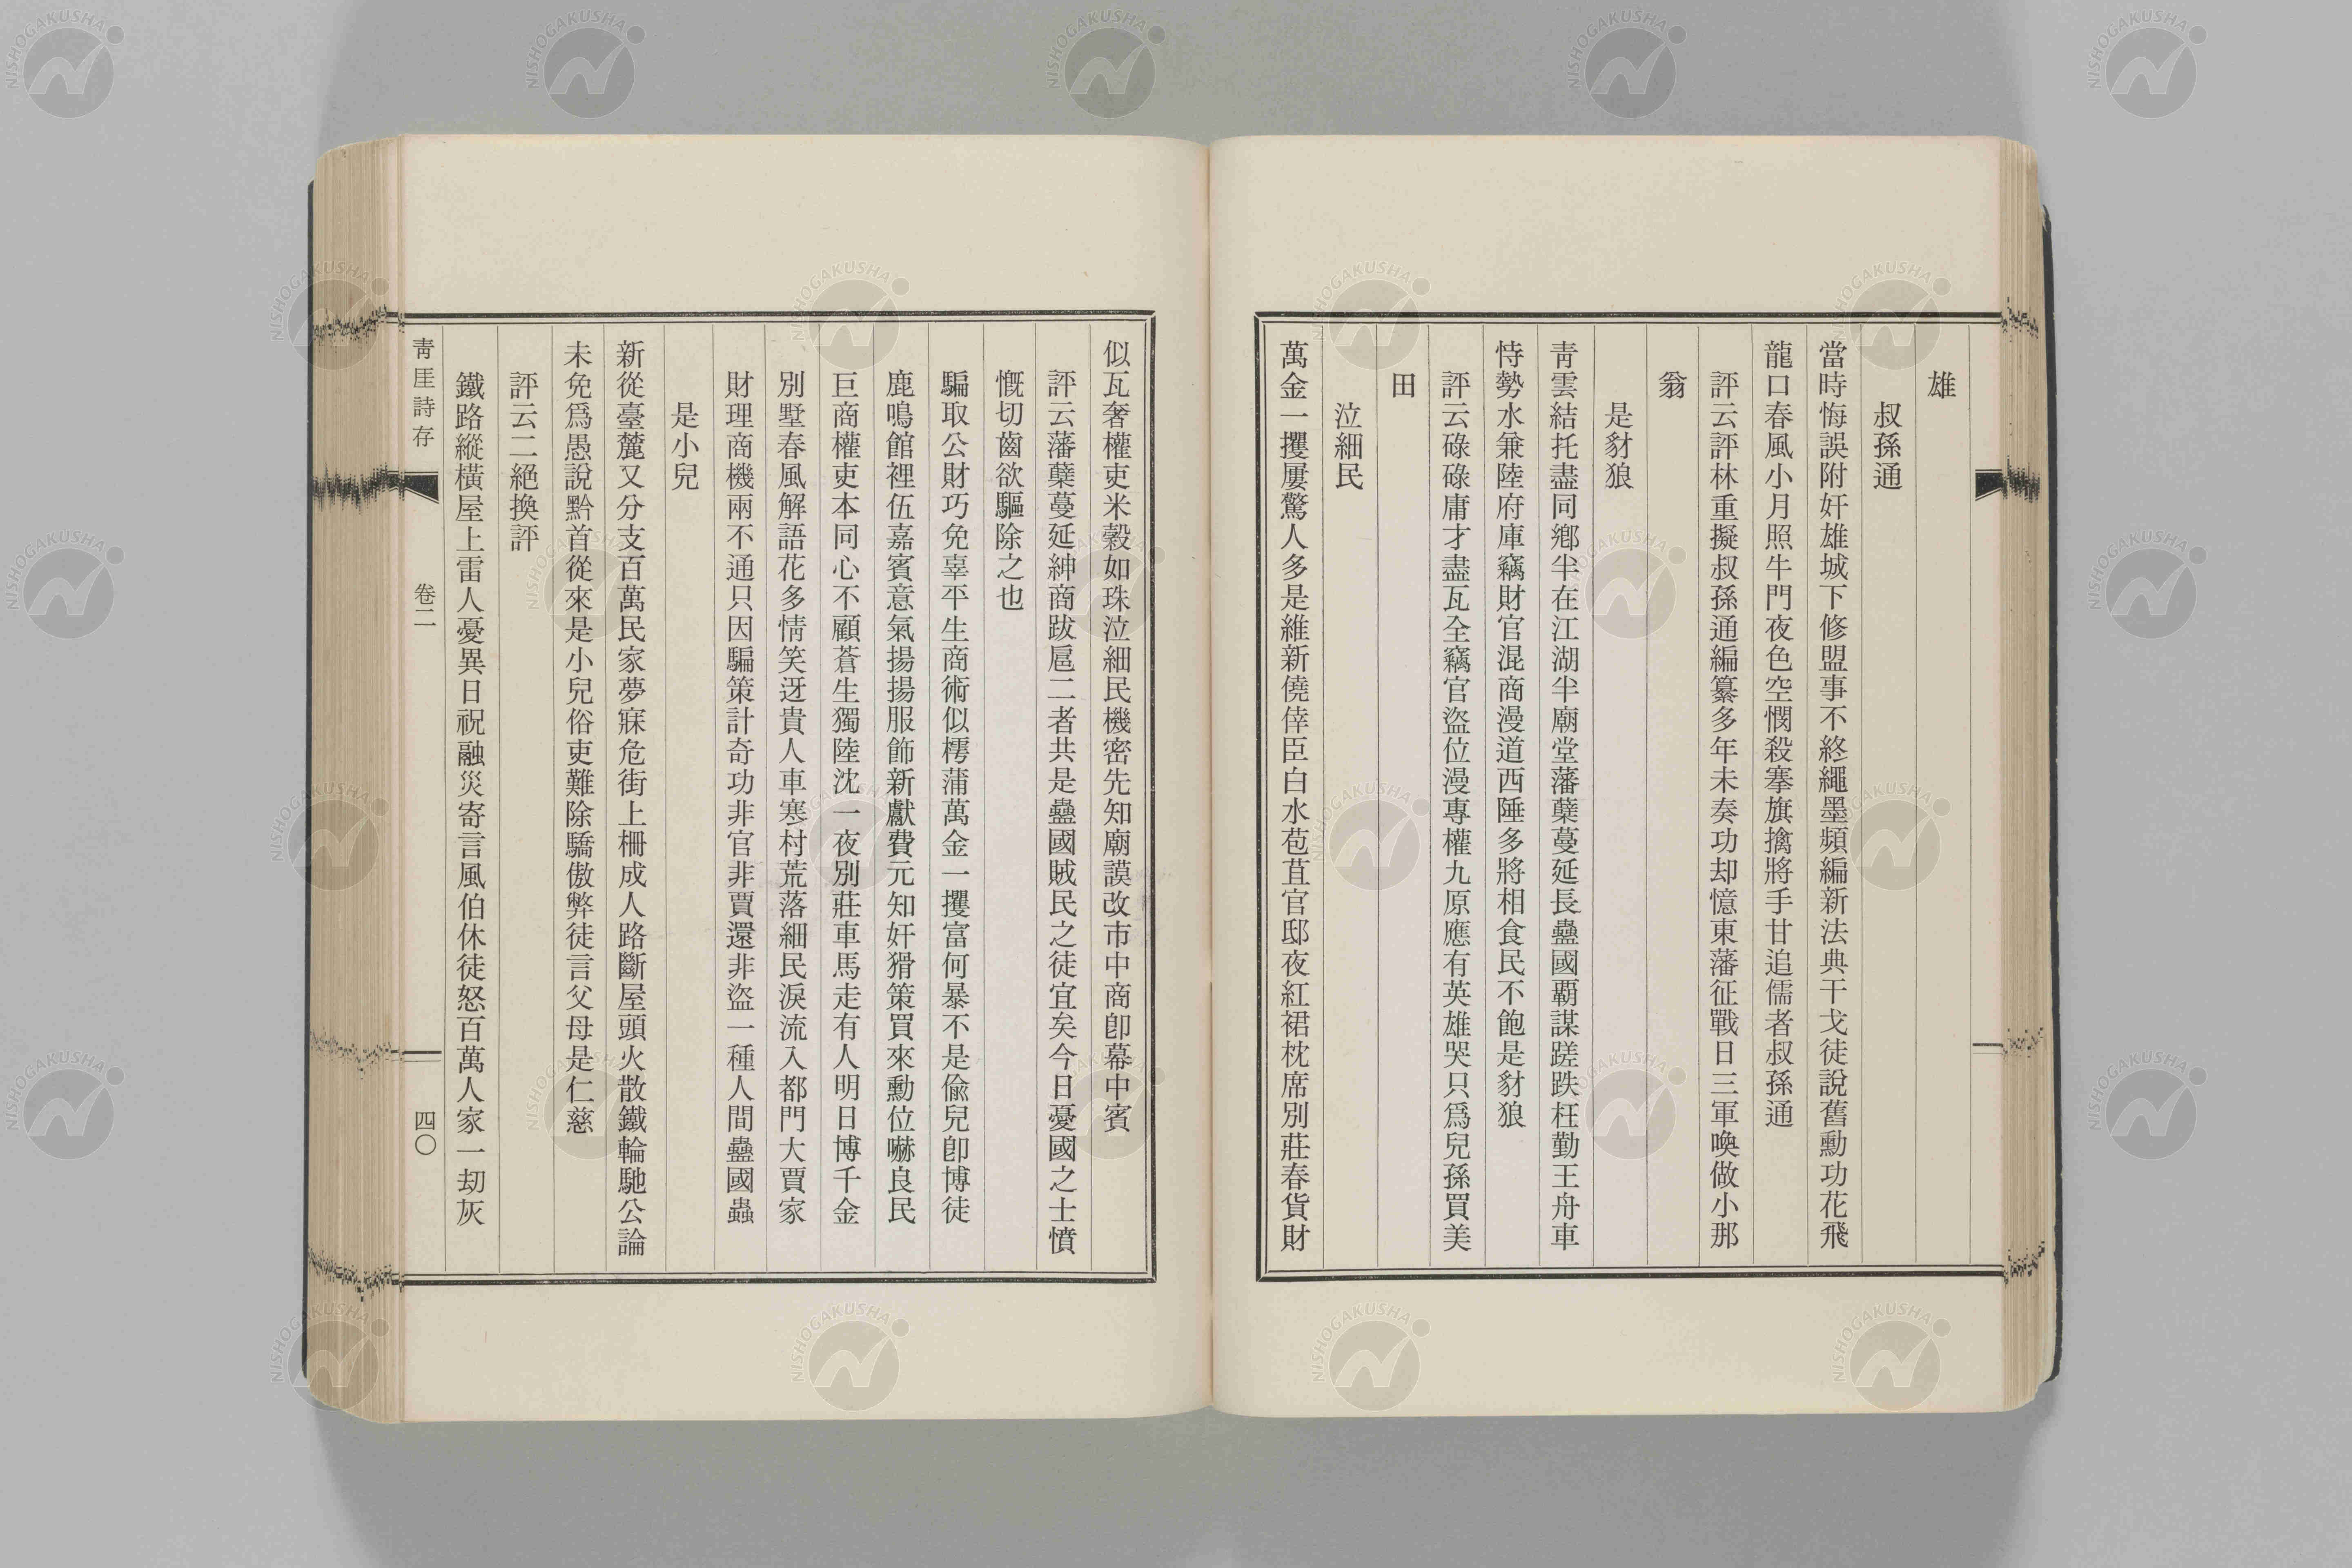 雄
叔孫通
當時悔誤附奸雄城下修盟事不終繩墨頻編新法典干戈徒說舊勳功花飛
龍口春風小月照牛門夜色空憫殺搴旗擒將手甘追儒者叔孫通
評云評林重擬叔孫通編纂多年未奏功却憶東藩征戰日三軍喚做小那
翁
是豺狼
靑雲結托盡同鄕半在江湖半廟堂藩蘗蔓延長蠱國覇謀蹉跌枉勤王舟車
恃勢水兼陸府庫竊財官混商漫道西陲多將相食民不飽是豺狼
評云碌碌庸才盡瓦全竊官盜位漫專權九原應有英雄哭只爲兒孫買美
田
泣細民
萬金一攫屢驚人多是維新僥倖臣白水苞苴官邸夜紅裙枕席別莊春貨財
似瓦奢權吏米穀如珠泣細民機密先知廟謨改市中商卽幕中賓
評云藩蘗蔓延紳商跋扈二者共是蠱國賊民之徒宜矣今日憂國之士憤
慨切齒欲驅除之也
騙取公財巧免辜平生商術似樗蒲萬金一攫富何暴不是偸兒卽博徒
鹿鳴館裡伍嘉賓意氣揚揚服飾新獻費元知奸猾策買來勳位嚇良民
巨商權吏本同心不顧蒼生獨陸沈一夜別莊車馬走有人明日博千金
別墅春風解語花多情笑迓貴人車寒村荒落細民淚流入都門大賈家
財理商機兩不通只因騙策計奇功非官非賈還非盜一種人間蠱國蟲
是小兒
新從臺麓又分支百萬民家夢寐危街上柵成人路斷屋頭火散鐵輪馳公論
未免爲愚說黔首從來是小兒俗吏難除驕傲弊徒言父母是仁慈
評云二絕換評
鐵路縱橫屋上雷人憂異日祝融災寄言風伯休徒怒百萬人家一刧灰
靑厓詩存
卷二
四〇
NISHOGAKUSHA